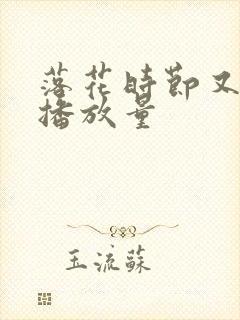 落花時節又
播放量
玉流蘇